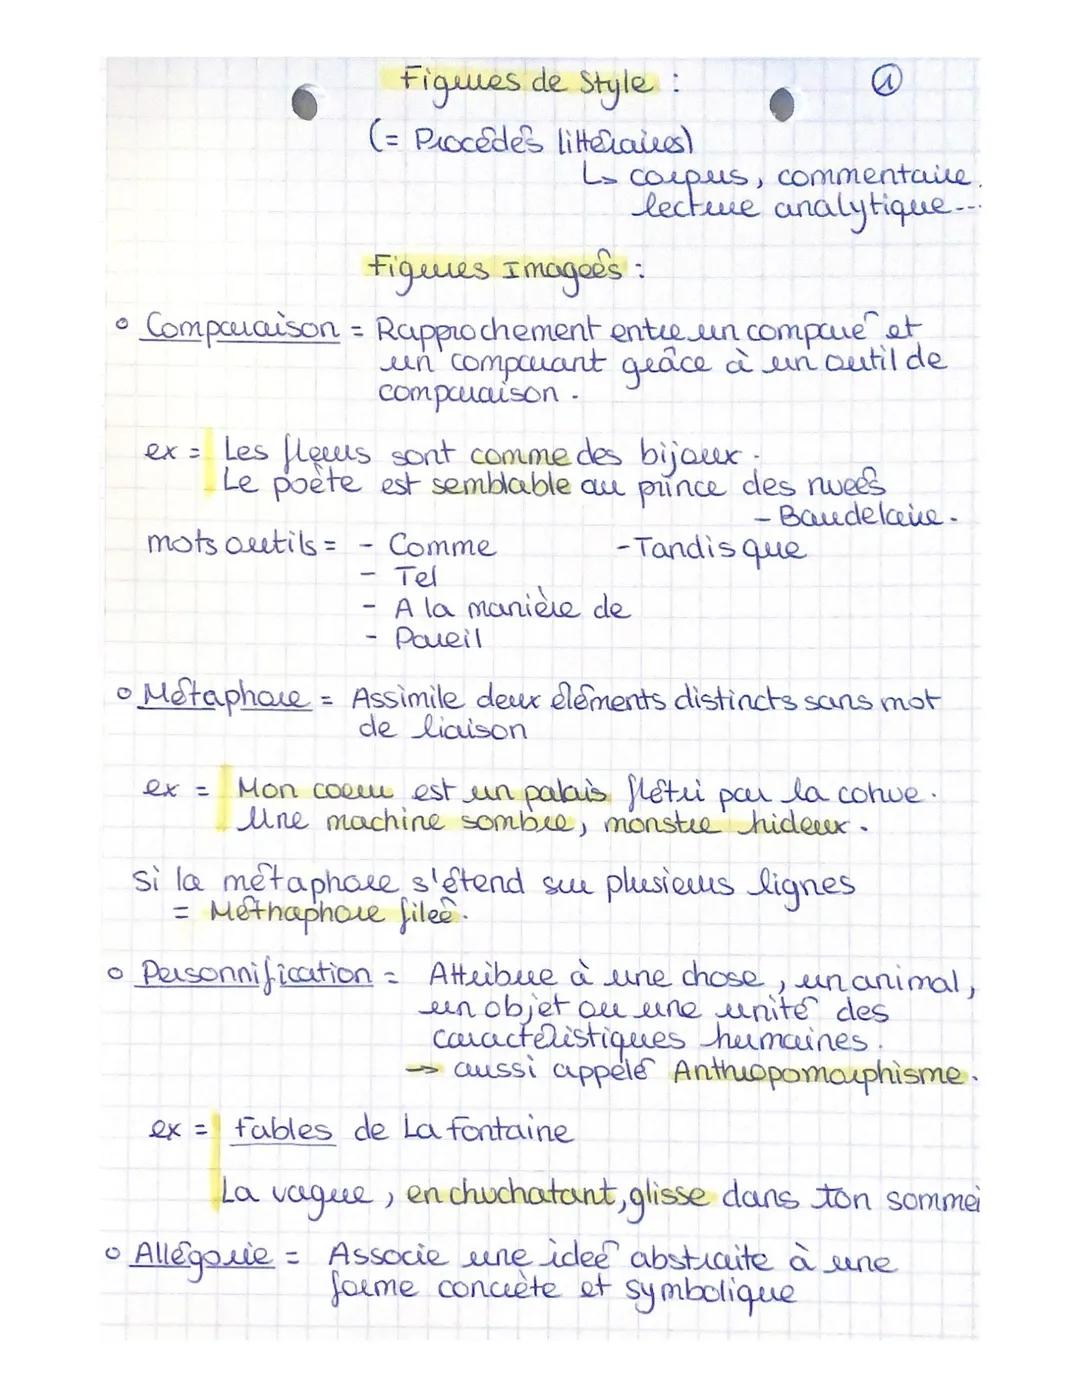 Figures de Style : 1
(= Procédés littéraires)
↳ corpus, commentaire,
lecture analytique...
Figures Imagées :
° Comparaison = Rapprochement entre un comparé et
un comparant grâce à un outil de
comparaison.
ex = Les fleurs sont comme des bijoux.
Le poète est semblable au prince des nuées
- Baudelaire.
mots outils = - Comme - Tandis que
- Tel
- A la manière de
- Pareil
° Métaphore = Assimile deux éléments distincts sans mot
de liaison
ex = Mon coeur est un palais flétri par la cohue.
Une machine sombre, monstre hideux.
Si la métaphore s'étend sur plusieurs lignes
= Méthaphore filée.
° Personnification = Attribue à une chose, un animal,
un objet ou une unité des
caractéristiques humaines.
→ aussi appelé Anthropomorphisme.
ex = Fables de La Fontaine
La vague, en chuchotant, glisse dans ton sommei
° Allégorie = Associe une idée abstraite à une
forme concrète et symbolique